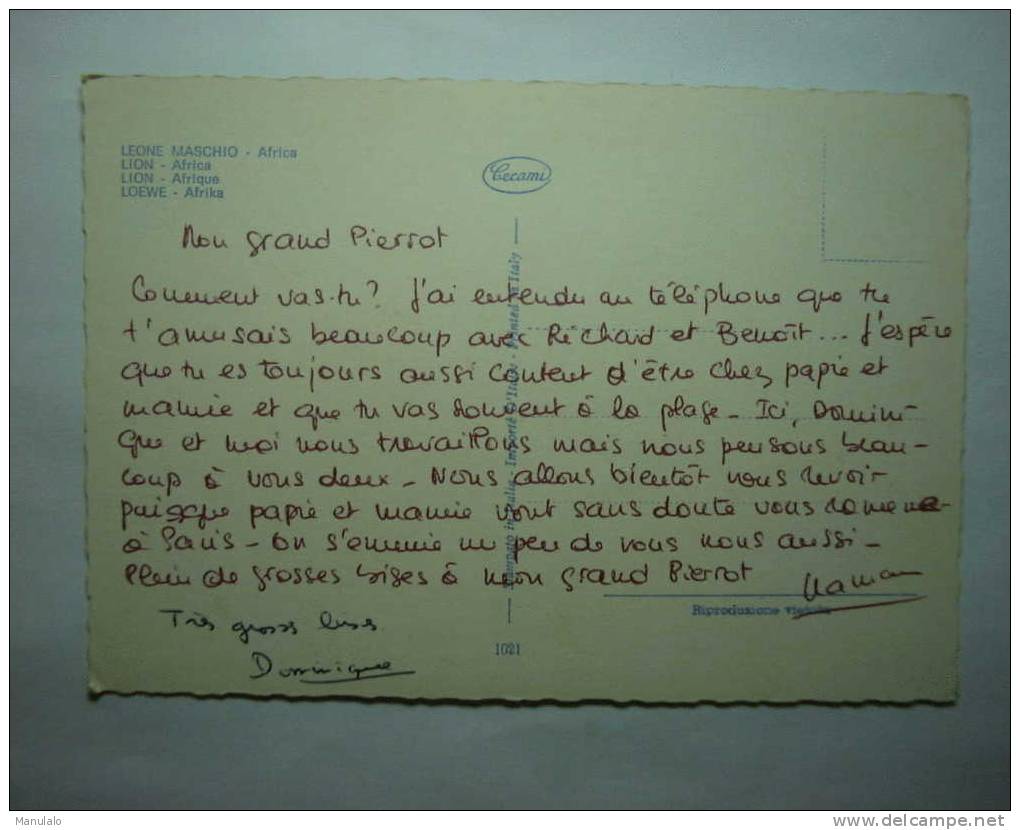 LEONE MASCHIO - Africa
LION - Africa
LION - Afrique
LOEWE - Afrika
Cecami
Mon grand Pierrot
Comment vas-tu? J'ai entendu au téléphone que tu
t'amusais beaucoup avec Richard et Benoît... J'espère
que tu es toujours aussi content d'être chez papie et
mamie et que tu vas souvent à la plage - Ici, Domini-
que et moi nous travaillons mais nous pensons beau-
coup à vous deux - Nous allons bientôt vous revoir
puisque papie et mamie vont sans doute vous ramener
à Paris - On s'ennuie un peu de vous nous aussi -
Plein de grosses bises à mon grand Pierrot
Maman
Très grosses bises
Dominique
Stampato in Italia - Importé d'Italie - Printed in Italy
Riproduzione vietata
1021
Manulalo
delcampe.net